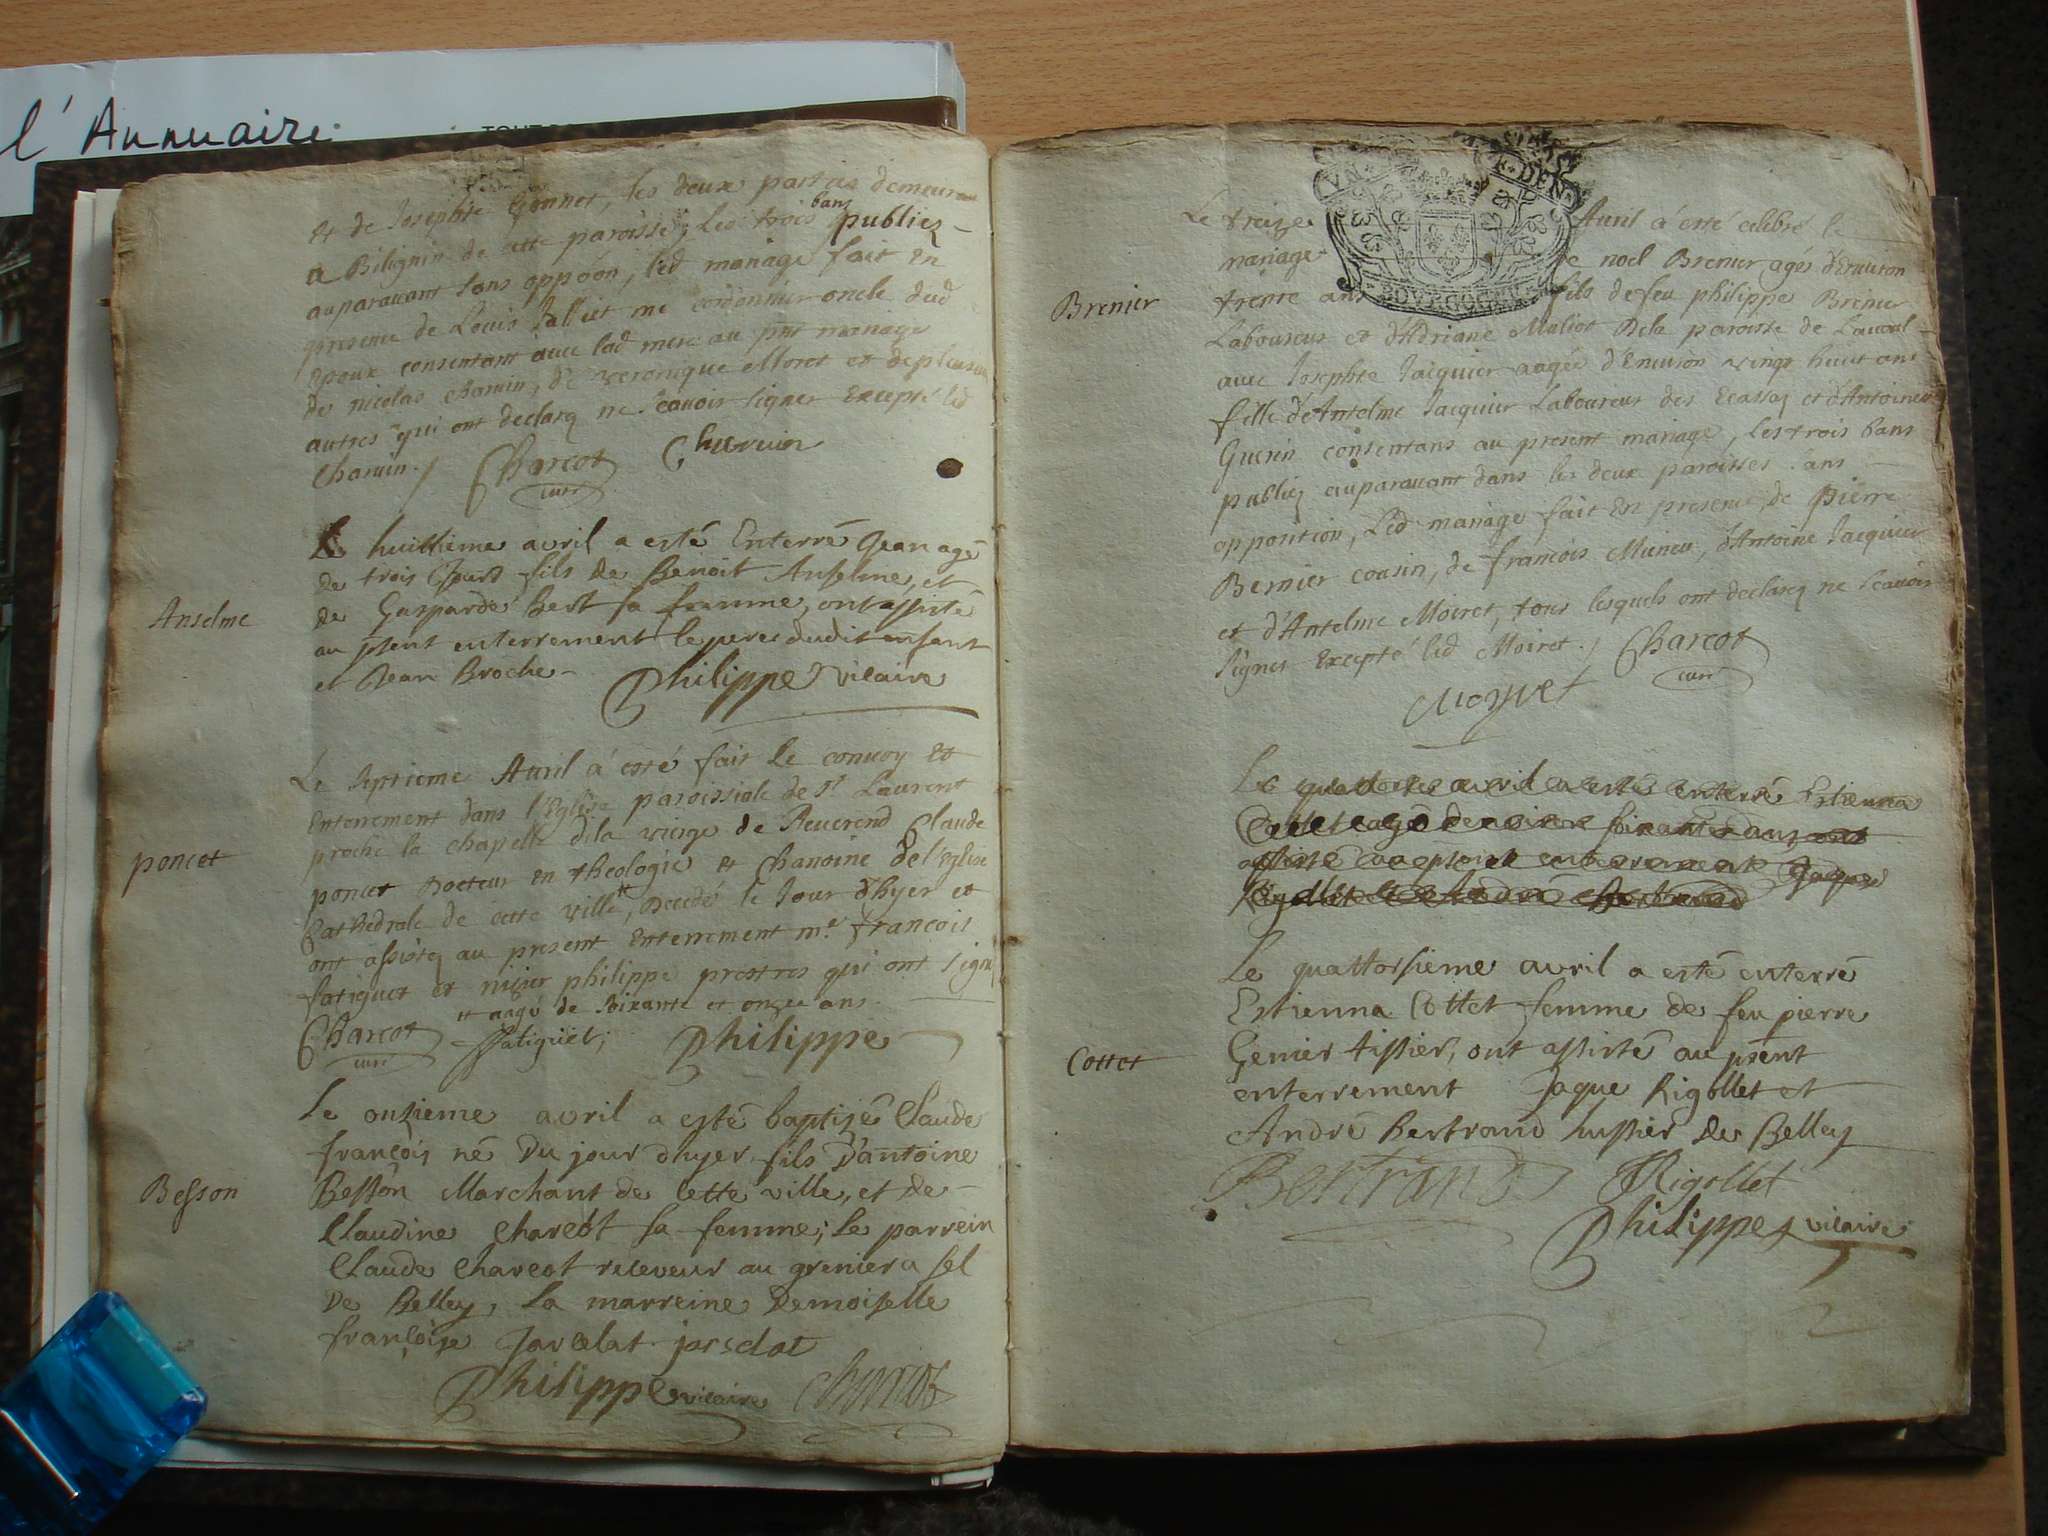 l'Annuaire
et de Josephte Gonnet, les deux parties demeurant
a Bilignin de cette paroisse, les trois bans publiez
auparavant sans oppoôn, led mariage fait en
presence de Louis Jalliet me cordonnier oncle dud
Epoux consentant avec lad mere au pnt mariage
de nicolas charuin, de veronique Moret et de plusieurs
autres qui ont declarez ne scauoir signer Excepté led
Charuin ./ Charcot Charuin
curé
Le huittieme avril a esté Enterré Jean agé
de trois Jours fils de Benoit Anselme, et
Anselme
de Gasparde Bert sa femme, ont assisté
au psent enterrement le pere dudit enfant
et Jean Broche -
Philippe vicaire
Le Septieme Auril á esté fait le conuoy et
Enterrement dans l'Eglise paroissiale de St Laurent
proche la chapelle dela vierge de Reuerend Claude
poncet
poncet Docteur en theologie et Chanoine de l'Eglise
Cathedrale de cette ville, Decedé le Jour d'hyer et
ont assistez au present Enterrement mr françois
fatiguet et nizier philippe prestres qui ont signé
aagé de Soixante et onze ans
Charcot fatiguët; Philippe
curé
Le onsieme avril a esté baptisé Claude
françois né Du jour dhyer fils D'antoine
Besson
Besson Marchant de Cette ville, et de
Claudine Charcot sa femme; le parrein
Claude Charcot receveur au grenier a sel
De Belley, La marreine Demoiselle
françoise Jarcelat. jarsclat
Philippe vicaire Charcot
Le treize Auril á esté celebré le
mariage de noel Brenier, agés d'Enuiron
Brenier
trente ans fils defeu philippe Brenier
Laboureur et d'Adriane Maliot Dela paroisse de Lauoul
auec Josephte Jacquier aagée d'Enuiron vingt huit ans
fille d'Anselme Jacquier Laboureur des Ecassez et d'Antoinette
Guerin consentans au present mariage, les trois bans
publiez auparauant dans les deux paroisses sans
opposition, Led mariage fait En presence, de Pierre
Bernier cousin, de françois Muneu, d'Antoine Jacquier
et d'Anselme Moiret, tous lesquels ont declarez ne scauoir
signer Excepté led Moiret ./ Charcot
curé
Moyret
Le quattorsieme avril a esté enterré Estienna
Le quattorsieme avril a esté enterré
Estienna Cottet femme de feu pierre
Cottet
Genier tissier, ont assisté au psent
enterrement Jaque Rigollet et
André Bertrand hussier de Belley
Bertrand Rigollet
Philippe vicaire